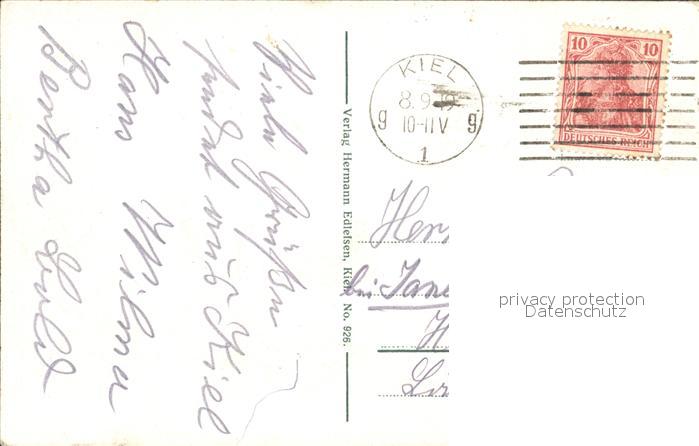 Viele Grüße
sendet aus Kiel
Hans Wilma
Bertha
Verlag Hermann Edlefsen, Kiel. No. 926.
KIEL
8.9.19
10-11 V
g g
1
10 10
DEUTSCHES REICH
Herr
bei
privacy protection
Datenschutz